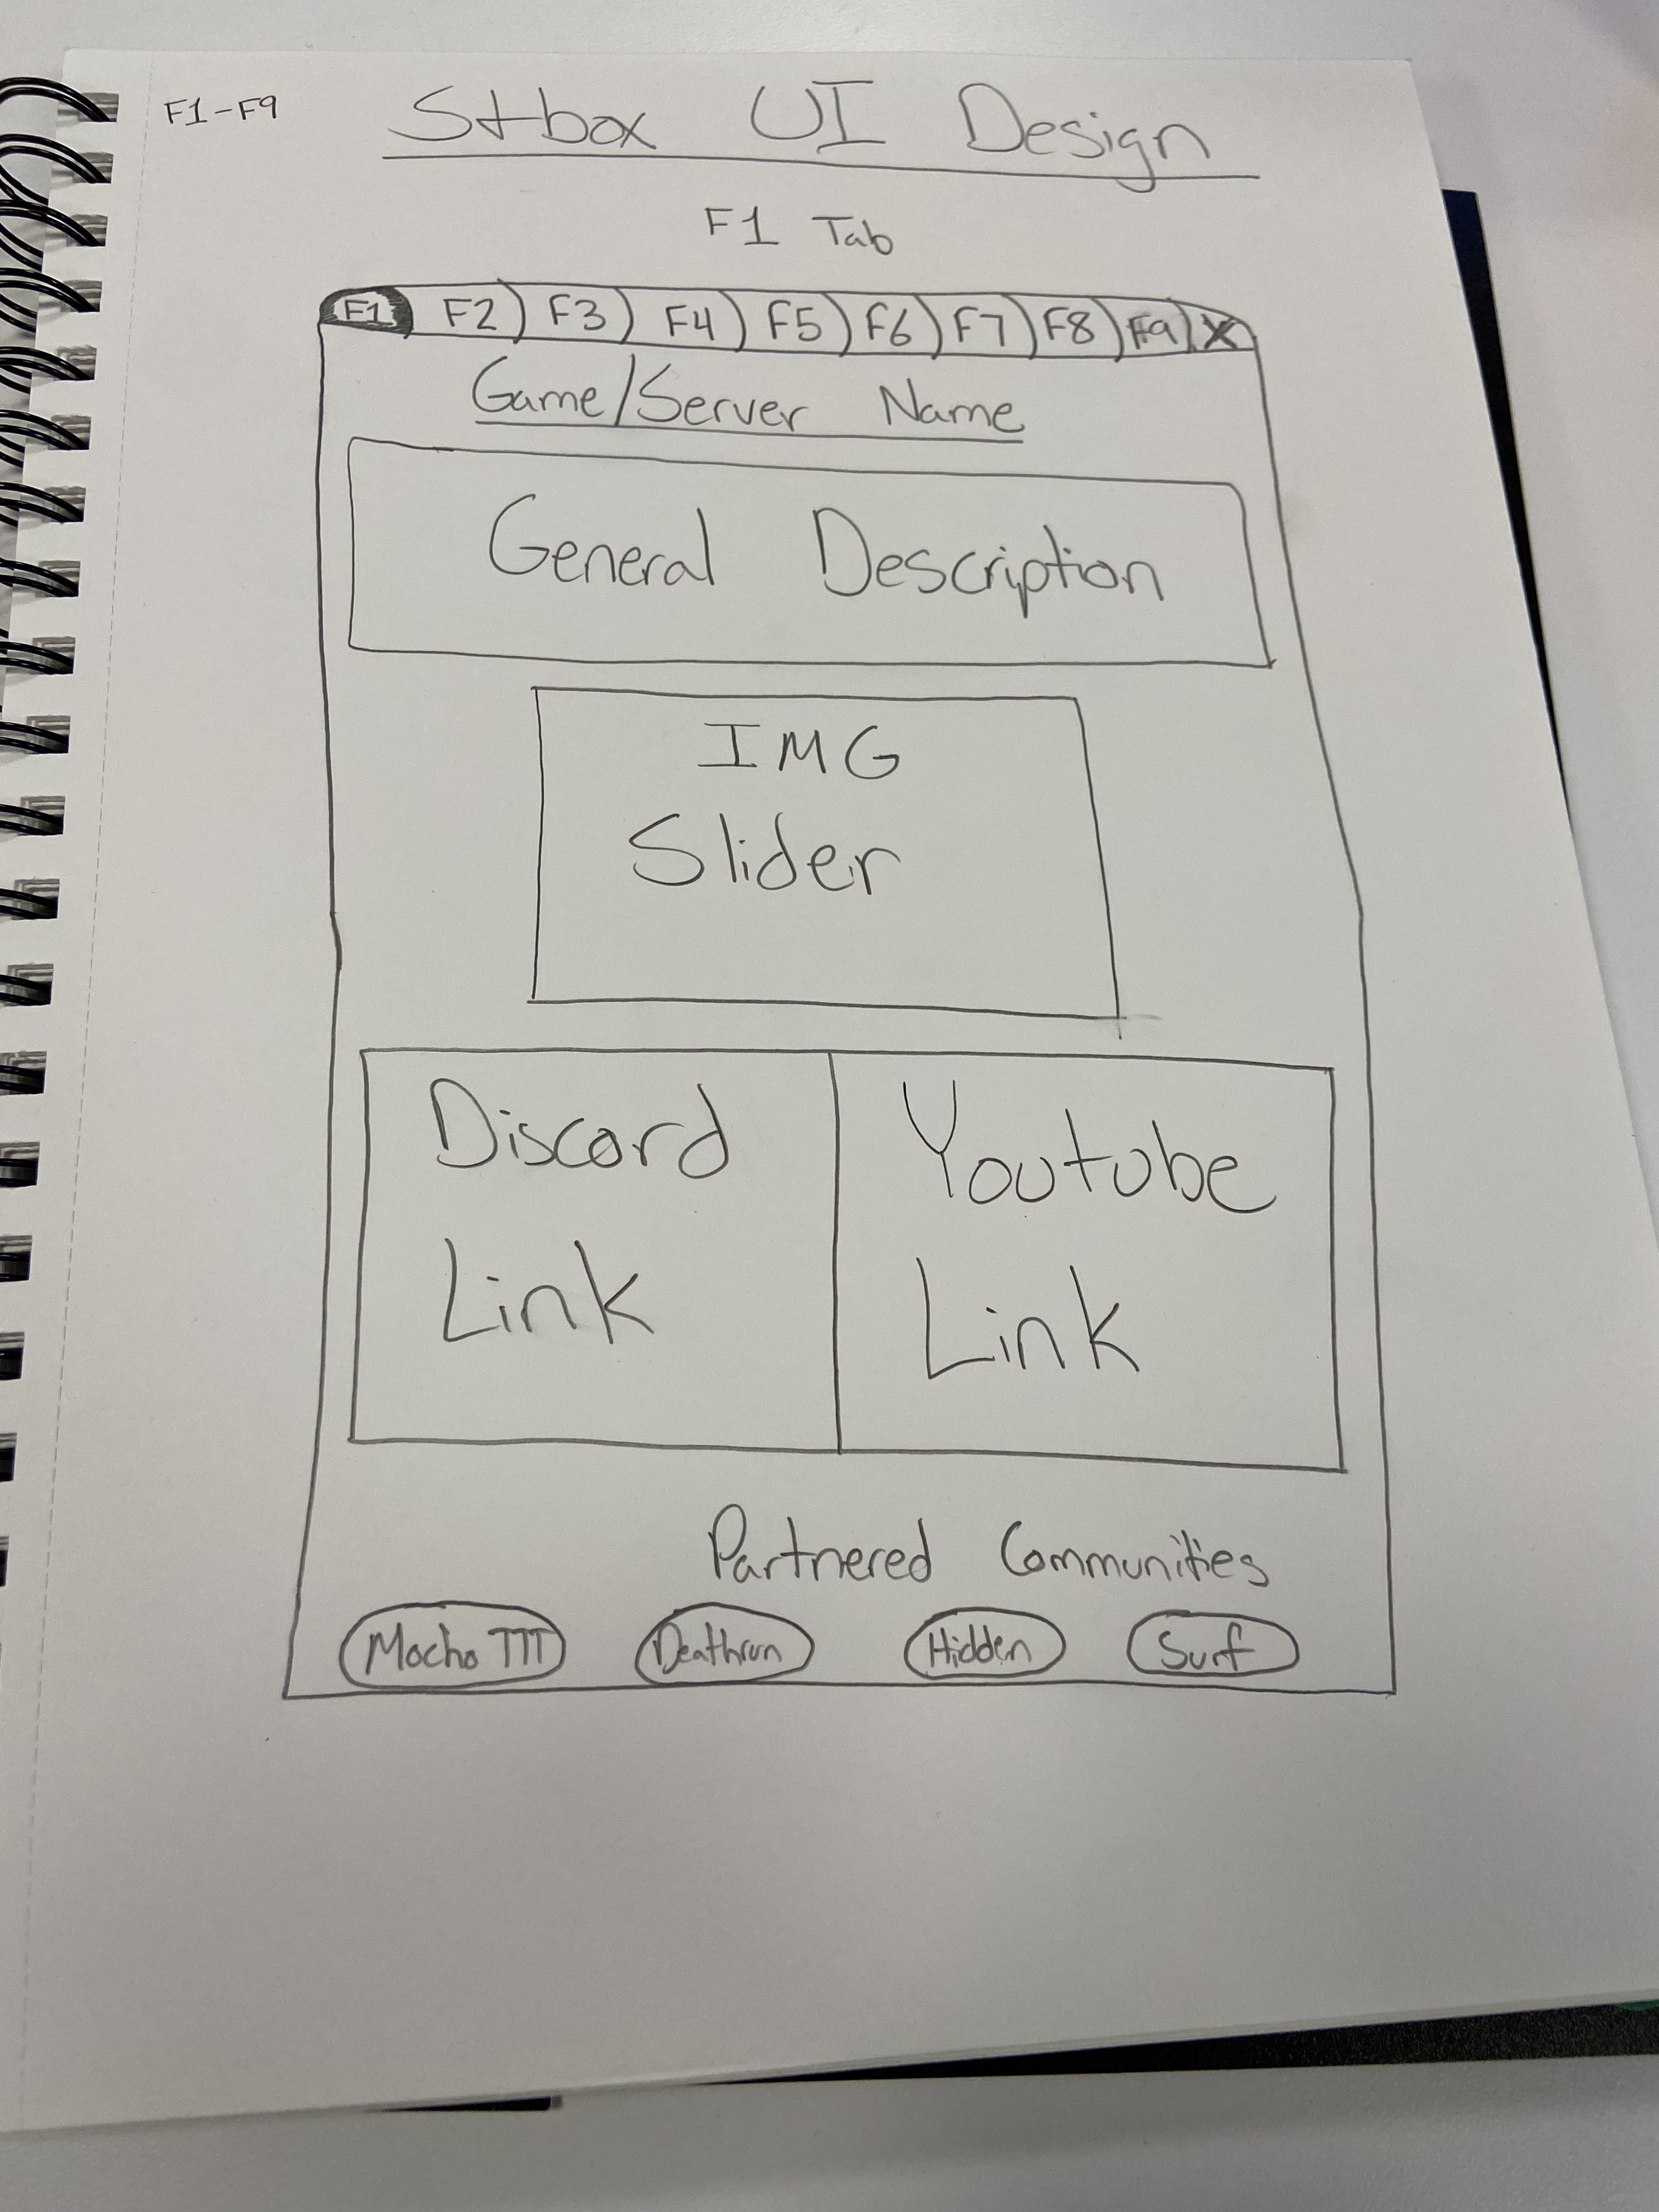 F1-F9
Stbox UI Design
F1 Tab
F1 F2 F3 F4 F5 F6 F7 F8 F9 X
Game/Server Name
General Description
IMG
Slider
Discord
Link
Youtube
Link
Partnered Communities
Mocho TTT Deathrun Hidden Surf